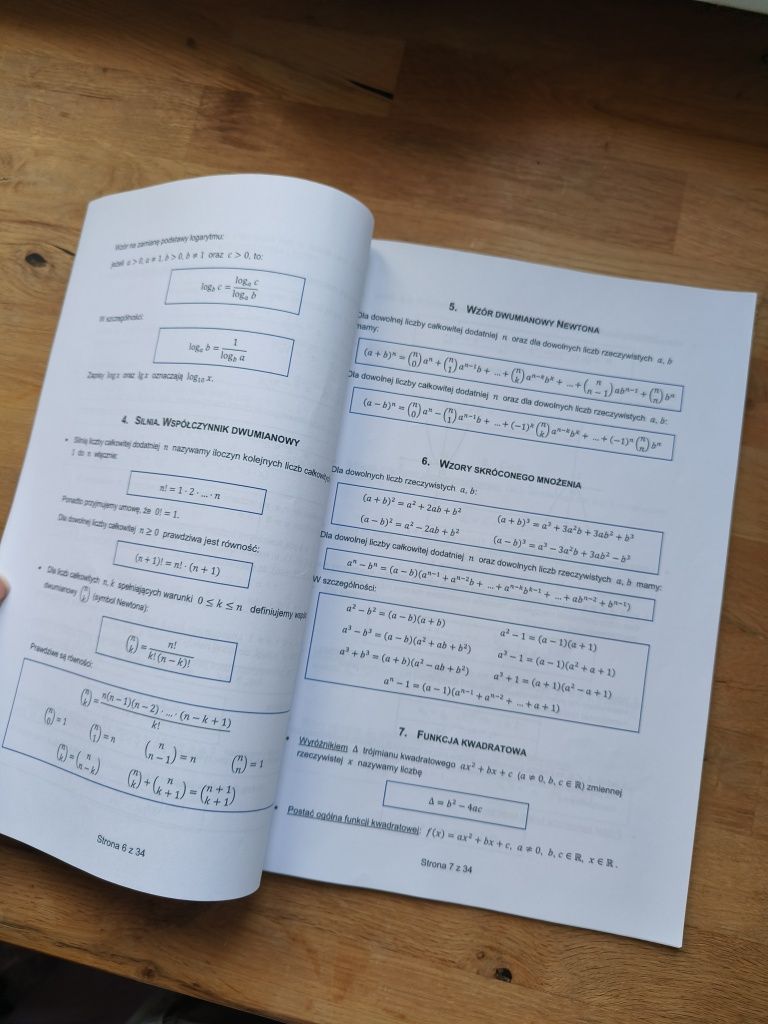 Wzór na zamianę podstawy logarytmu:
Jeżeli a > 0, a ≠ 1, b > 0, b ≠ 1 oraz c > 0, to:
log_b c = log_a c / log_a b
W szczególności:
log_a b = 1 / log_b a
Zapisy log x oraz lg x oznaczają log₁₀ x.
4. SILNIA. WSPÓŁCZYNNIK DWUMIANOWY
• Silnią liczby całkowitej dodatniej n nazywamy iloczyn kolejnych liczb
1 do n włącznie:
n! = 1 · 2 · ... · n
Ponadto przyjmujemy umowę, że 0! = 1.
Dla dowolnej liczby całkowitej n ≥ 0 prawdziwa jest równość:
(n + 1)! = n! · (n + 1)
• Dla liczb całkowitych n, k spełniających warunki 0 ≤ k ≤ n definiujemy
dwumianowy (n k) (symbol Newtona):
(n k) = n! / k! (n − k)!
Prawdziwe są równości:
(n k) = n(n − 1)(n − 2) · ... · (n − k + 1) / k!
(n 0) = 1 (n 1) = n (n n − 1) = n (n n) = 1
(n k) = (n n − k) (n k) + (n k + 1) = (n + 1 k + 1)
Strona 6 z 34
5. WZÓR DWUMIANOWY NEWTONA
Dla dowolnej liczby całkowitej dodatniej n oraz dla dowolnych liczb rzeczywistych a, b
mamy:
(a + b)ⁿ = (n 0) aⁿ + (n 1) aⁿ⁻¹b + ... + (n k) aⁿ⁻ᵏbᵏ + ... + (n n − 1) abⁿ⁻¹ + (n n) bⁿ
Dla dowolnej liczby całkowitej dodatniej n oraz dla dowolnych liczb rzeczywistych a, b:
(a − b)ⁿ = (n 0) aⁿ − (n 1) aⁿ⁻¹b + ... + (−1)ᵏ (n k) aⁿ⁻ᵏbᵏ + ... + (−1)ⁿ (n n) bⁿ
6. WZORY SKRÓCONEGO MNOŻENIA
Dla dowolnych liczb rzeczywistych a, b:
(a + b)² = a² + 2ab + b² (a + b)³ = a³ + 3a²b + 3ab² + b³
(a − b)² = a² − 2ab + b² (a − b)³ = a³ − 3a²b + 3ab² − b³
Dla dowolnej liczby całkowitej dodatniej n oraz dowolnych liczb rzeczywistych a, b mamy:
aⁿ − bⁿ = (a − b)(aⁿ⁻¹ + aⁿ⁻²b + ... + aⁿ⁻ᵏbᵏ⁻¹ + ... + abⁿ⁻² + bⁿ⁻¹)
W szczególności:
a² − b² = (a − b)(a + b) a² − 1 = (a − 1)(a + 1)
a³ − b³ = (a − b)(a² + ab + b²) a³ − 1 = (a − 1)(a² + a + 1)
a³ + b³ = (a + b)(a² − ab + b²) a³ + 1 = (a + 1)(a² − a + 1)
aⁿ − 1 = (a − 1)(aⁿ⁻¹ + aⁿ⁻² + ... + a + 1)
7. FUNKCJA KWADRATOWA
• Wyróżnikiem Δ trójmianu kwadratowego ax² + bx + c (a ≠ 0, b, c ∈ ℝ) zmiennej
rzeczywistej x nazywamy liczbę
Δ = b² − 4ac
• Postać ogólna funkcji kwadratowej: f(x) = ax² + bx + c, a ≠ 0, b, c ∈ ℝ, x ∈ ℝ.
Strona 7 z 34